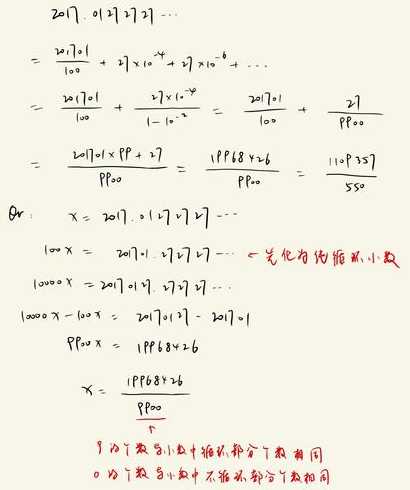 2017.01272727...
= 201701/100 + 27×10^-4 + 27×10^-6 + ...
= 201701/100 + 27×10^-4/(1-10^-2) = 201701/100 + 27/9900
= (201701×99+27)/9900 = 19968426/9900 = 1109357/550
Or: x = 2017.01272727...
100x = 201701.272727... ← 先化为纯循环小数
10000x = 20170127.2727...
10000x - 100x = 20170127 - 201701
9900x = 19968426
x = 19968426/9900
↑
9的个数与小数中循环部分个数相同
0的个数与小数中不循环部分个数相同